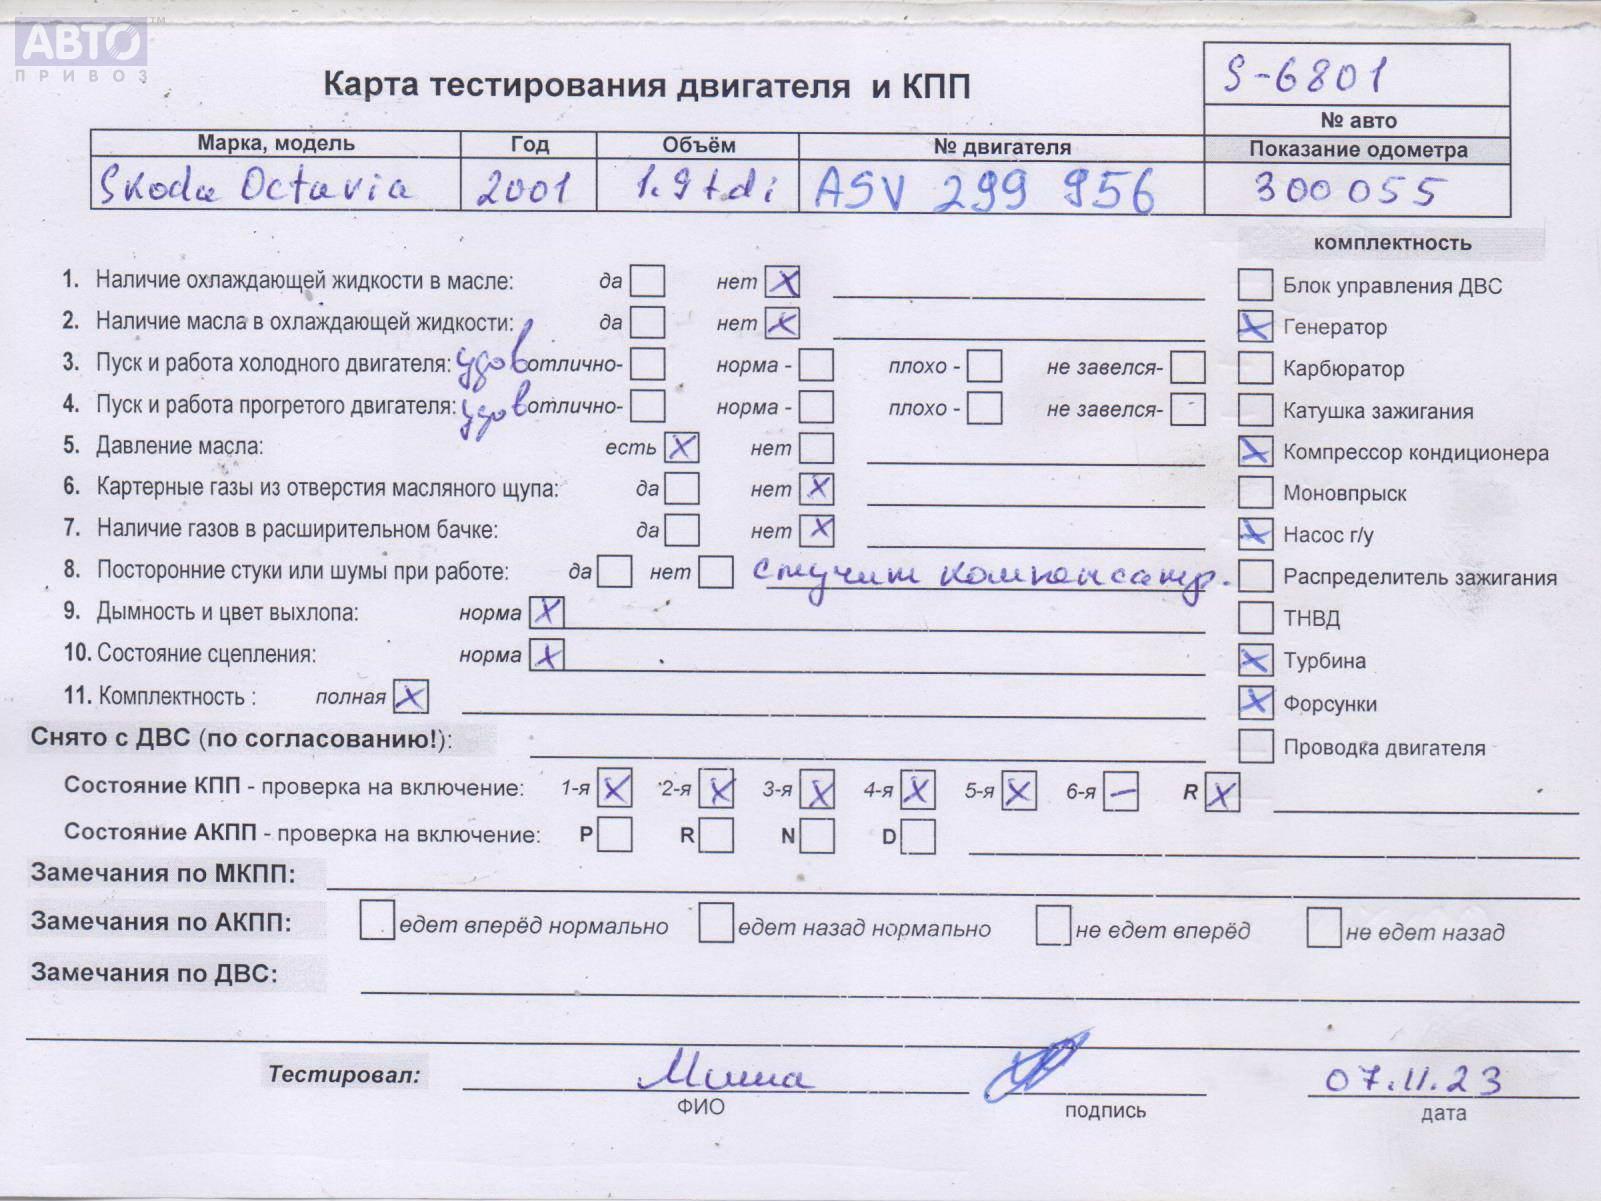 АВТО™
ПРИВОЗ
Карта тестирования двигателя и КПП
S-6801
№ авто
Марка, модель Год Объём № двигателя Показание одометра
Skoda Octavia 2001 1.9 tdi ASV 299 956 300 055
комплектность
1. Наличие охлаждающей жидкости в масле: да нет X
Блок управления ДВС
2. Наличие масла в охлаждающей жидкости: да нет X
X Генератор
3. Пуск и работа холодного двигателя: удов отлично- норма - плохо - не завелся-
Карбюратор
4. Пуск и работа прогретого двигателя: удов отлично- норма - плохо - не завелся-
Катушка зажигания
5. Давление масла: есть X нет
X Компрессор кондиционера
6. Картерные газы из отверстия масляного щупа: да нет X
Моновпрыск
7. Наличие газов в расширительном бачке: да нет X
X Насос г/у
8. Посторонние стуки или шумы при работе: да нет стучит компенсатр.
Распределитель зажигания
9. Дымность и цвет выхлопа: норма X
ТНВД
10. Состояние сцепления: норма X
X Турбина
11. Комплектность : полная X
X Форсунки
Снято с ДВС (по согласованию!):
Проводка двигателя
Состояние КПП - проверка на включение: 1-я X 2-я X 3-я X 4-я X 5-я X 6-я — R X
Состояние АКПП - проверка на включение: P R N D
Замечания по МКПП:
Замечания по АКПП: едет вперёд нормально едет назад нормально не едет вперёд не едет назад
Замечания по ДВС:
Тестировал: Миша 07.11.23
ФИО подпись дата